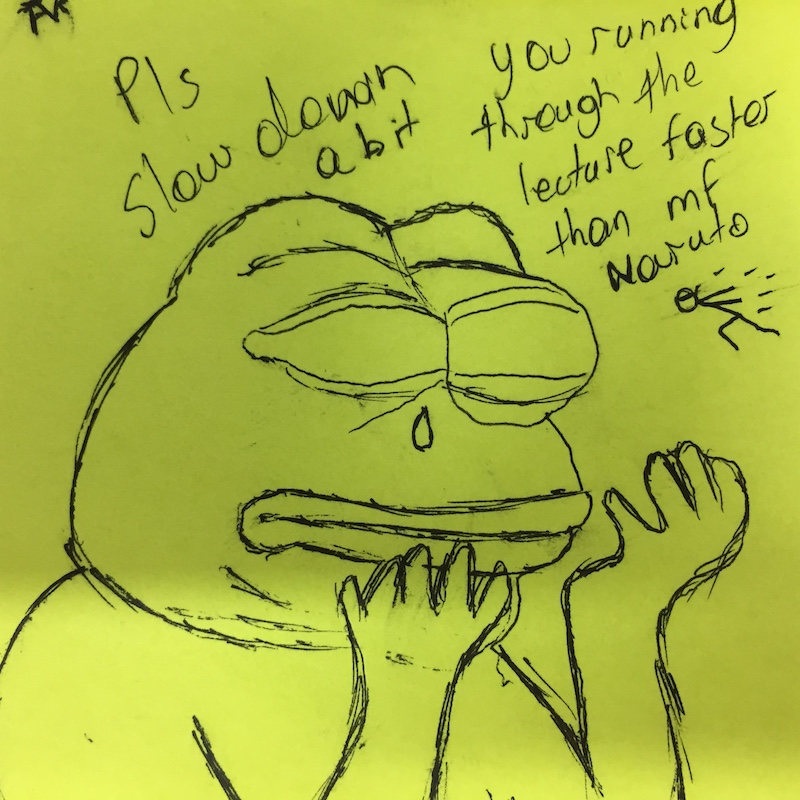 Pls
slow down
a bit
you running
through the
lecture faster
than mf
Naruto